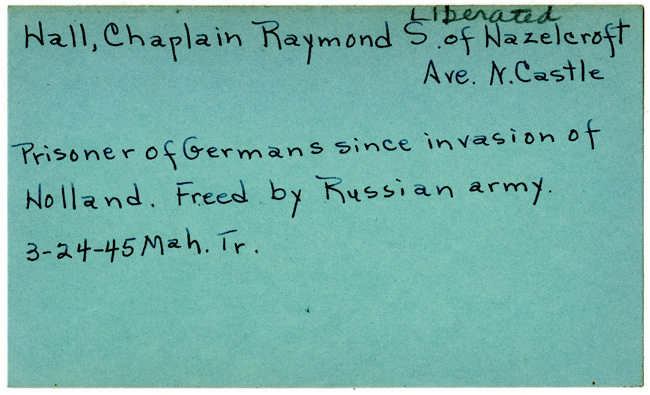 Liberated
Hall, Chaplain Raymond S. of Hazelcroft
Ave. N. Castle
Prisoner of Germans since invasion of
Holland. Freed by Russian army.
3-24-45 Mah. Tr.